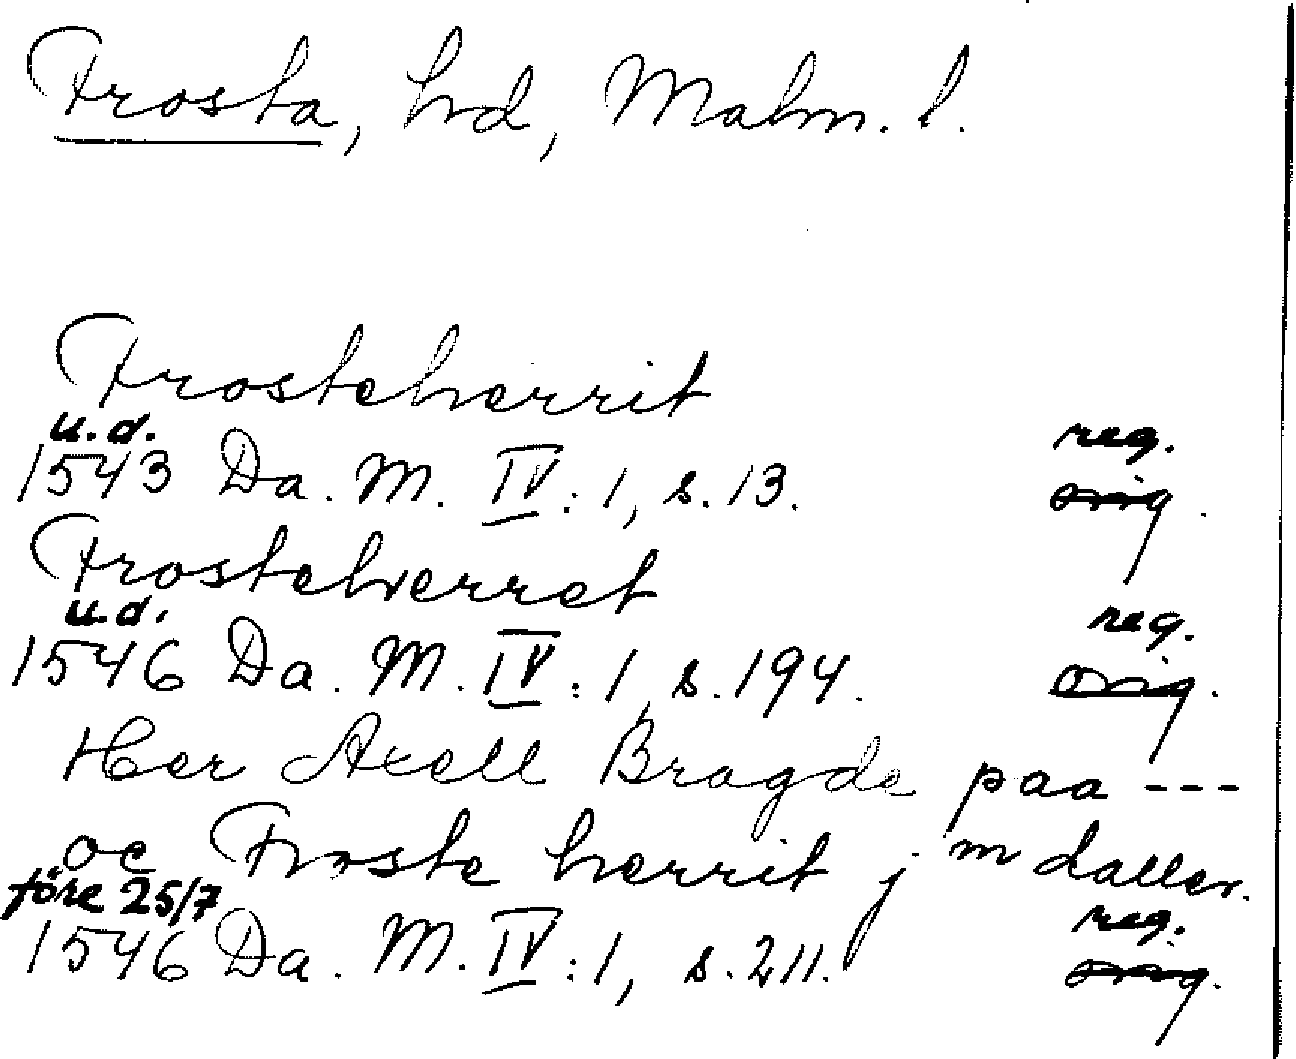 Frosta, hd, Malm. l.
Frosteherrit
u.d. reg.
1543 Da. M. IV:1, s.13. orig.
Frosteherret
u.d. reg.
1546 Da. M. IV:1, s.194. orig.
Her Axell Bragde paa ---
oc Froste herrit j m daller.
före 25/7 reg.
1546 Da. M. IV:1, s.211. orig.